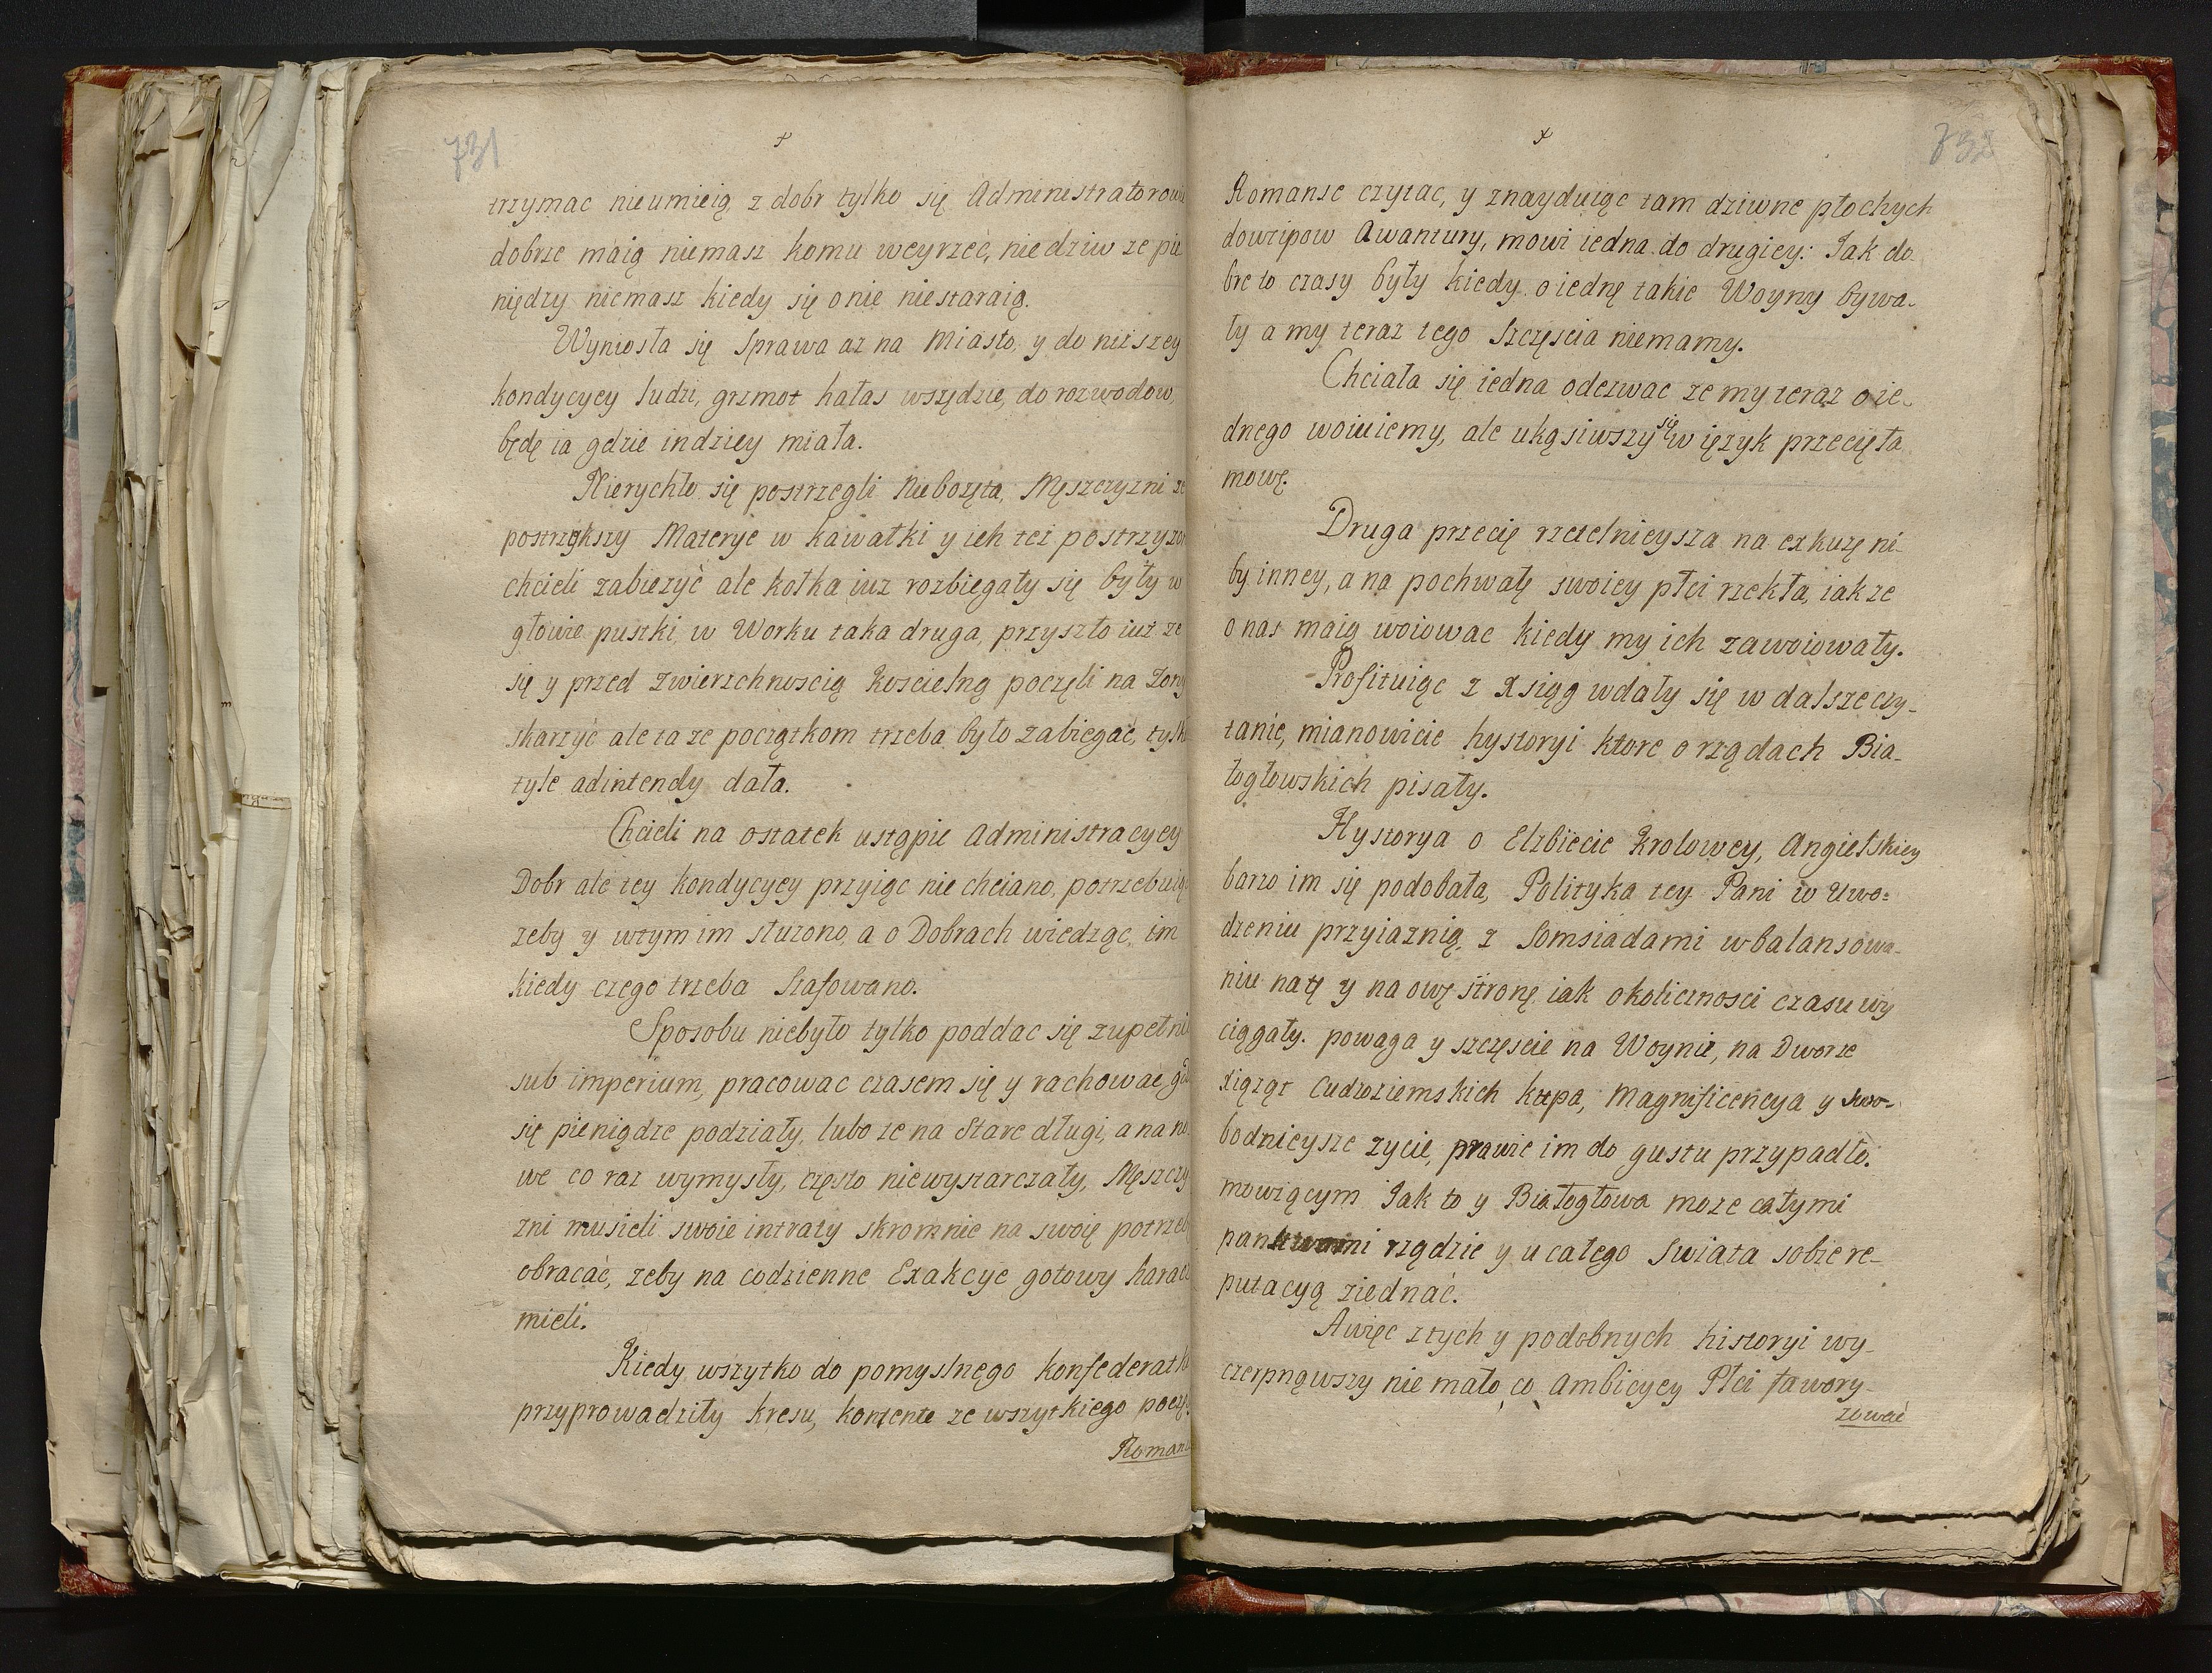 731
trzymac nieumieią z dobr tylko się Administratorow
dobrze maią niemasz komu weyrzeć, nie dziw ze pie
niędzy niemasz kiedy się o nie niestaraią.
Wyniosła się Sprawa az na Miasto, y do nizszey
kondycyey ludzi, grzmot hałas wszędzie, do rozwodow,
będę ia gdzie indziey miała.
Nierychło się postrzegli Niebozęta, Męszczyzni ze
postrzygszy Materye w kawałki y ich tez postrzyzon
chcieli zabiezyć ale kołka iuz rozbiegały się były w
głowie pustki, w Worku taka druga, przyszło iuz ze
się y przed zwierzchnoscią Koscielną poczęli na Zony
skarzyć ale ta ze początkom trzeba było zabiegać, tylk
tyle adintendy dała.
Chcieli na ostatek ustąpic Administracyey
Dobr ale tey kondycyey przyiąc nie chciano, potrzebuiąc
zeby y wtym im słuzono, a o Dobrach wiedząc, im
kiedy czego trzeba Szafowano.
Sposobu niebyło tylko poddac się zupełni
sub imperium, pracowac czasem się y rachowac, gd
się pieniądze podziały, lubo ze na Stare długi, a na no
we co raz wymysły, często niewystarczały, Męszczy
zni musieli swoie intraty skromnie na swoię potrzeb
obracać, zeby na codzienne Exakcye gotowy haracz
mieli.
Kiedy wszytko do pomyslnego konfederatk
przyprowadziły kresu, kontente ze wszytkiego poczę
Romans
732
Romanse czytac, y znayduiąc tam dziwne płochych
dowcipow Awantury, mowi iedna do drugiey: Jak do
bre to czasy były kiedy o iednę takie Woyny bywa-
ły a my teraz tego Szczęscia niemamy.
Chciała się iedna odezwac ze my teraz o ie-
dnego woiuiemy, ale ukąsiwszy się w ięzyk przecięła
mowę.
Druga przecię rzetelnieysza na exkuzę ni-
by inney, a na pochwałę swoiey płci rzekła, iak ze
o nas maią woiowac kiedy my ich zawoiowały.
Profituiąc z Xsiąg wdały się w dalsze czy-
tanie, mianowicie hystoryi ktore o rządach Bia-
łogłowskich pisały.
Hystorya o Elzbiecie Krolowey, Angielskiey
barzo im się podobała, Polityka tey Pani w Uwo=
dzeniu przyiaznią, z Somsiadami wbalansowa-
niu na tę y na owę stronę iak okolicznosci czasu wy
ciągały. powaga y szczęscie na Woynie, na Dworze
xiąząt Cudzoziemskich kupa, Magnificencya y swo-
bodnieysze zycie, prawie im do gustu przypadło.
mowiącym Jak to y Białogłowa moze całymi
panstwami rządzic y u całego Swiata sobie re-
putacyą ziednać.
A więc z tych y podobnych historyi wy-
czerpnąwszy nie mało co Ambicyey Płci fawory-
zować